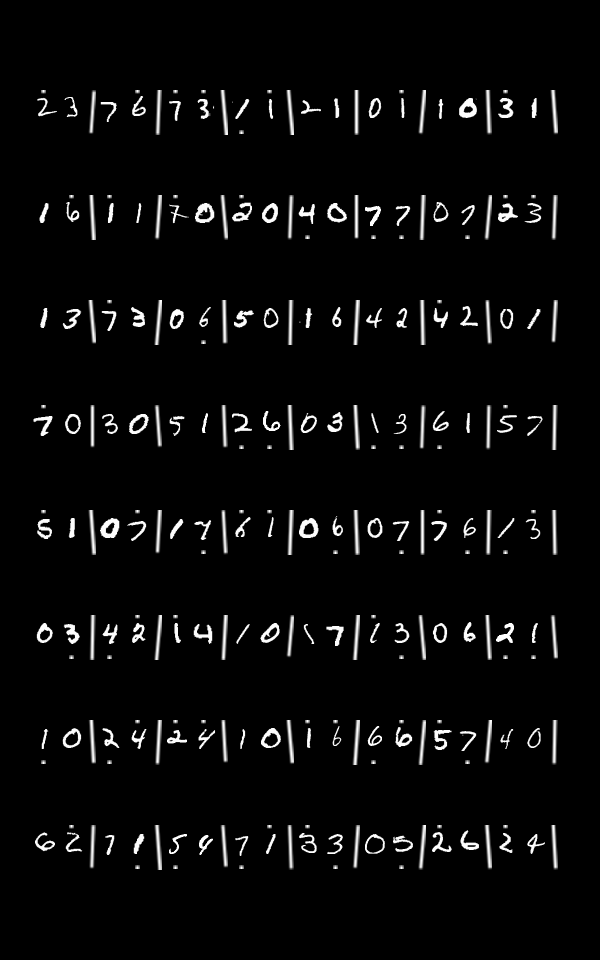 2 3 | 7 6 | 7 3 | 1 1 | 2 1 | 0 1 | 1 0 | 3 1 |
1 6 | 1 1 | 7 0 | 2 0 | 4 0 | 7 7 | 0 7 | 2 3 |
1 3 | 7 3 | 0 6 | 5 0 | 1 6 | 4 2 | 4 2 | 0 1 |
7 0 | 3 0 | 5 1 | 2 6 | 0 3 | 1 3 | 6 1 | 5 7 |
5 1 | 0 7 | 1 7 | 6 1 | 0 6 | 0 7 | 7 6 | 1 3 |
0 3 | 4 2 | 1 4 | 1 0 | 1 7 | 1 3 | 0 6 | 2 1 |
1 0 | 2 4 | 2 4 | 1 0 | 1 6 | 6 6 | 5 7 | 4 0 |
6 2 | 7 1 | 5 4 | 7 1 | 3 3 | 0 5 | 2 6 | 2 4 |